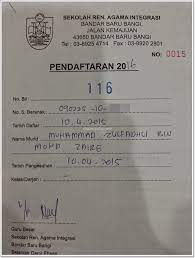 SEKOLAH REN. AGAMA INTEGRASI
BANDAR BARU BANGI,
JALAN KEMAJUAN
43650 BANDAR BARU BANGI
Tel: 03-8925 4714 Fax: 03-8920 2801
NO: 0015
PENDAFTARAN 2016
116
No. Bil :
No. S. Beranak : 090225-10-
Tarikh Daftar : 10.4.2015
Nama Murid : MUHAMMAD ZULFADHLI BIN
MOHD ZAIRE
Tarikh Pengesahan : 10.04.2015
Kelas/Darjah :
Guru Besar
Sekolah Ren. Agama Integrasi
Bandar Baru Bangi